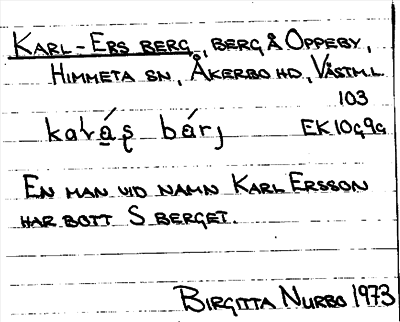 KARL-ERS BERG, BERG Å OPPEBY,
HIMMETA SN, ÅKERBO HD, VÄSTM.L.
103
EK 10g9g
EN MAN VID NAMN KARL ERSSON
HAR BOTT S BERGET.
BIRGITTA NURBO 1973